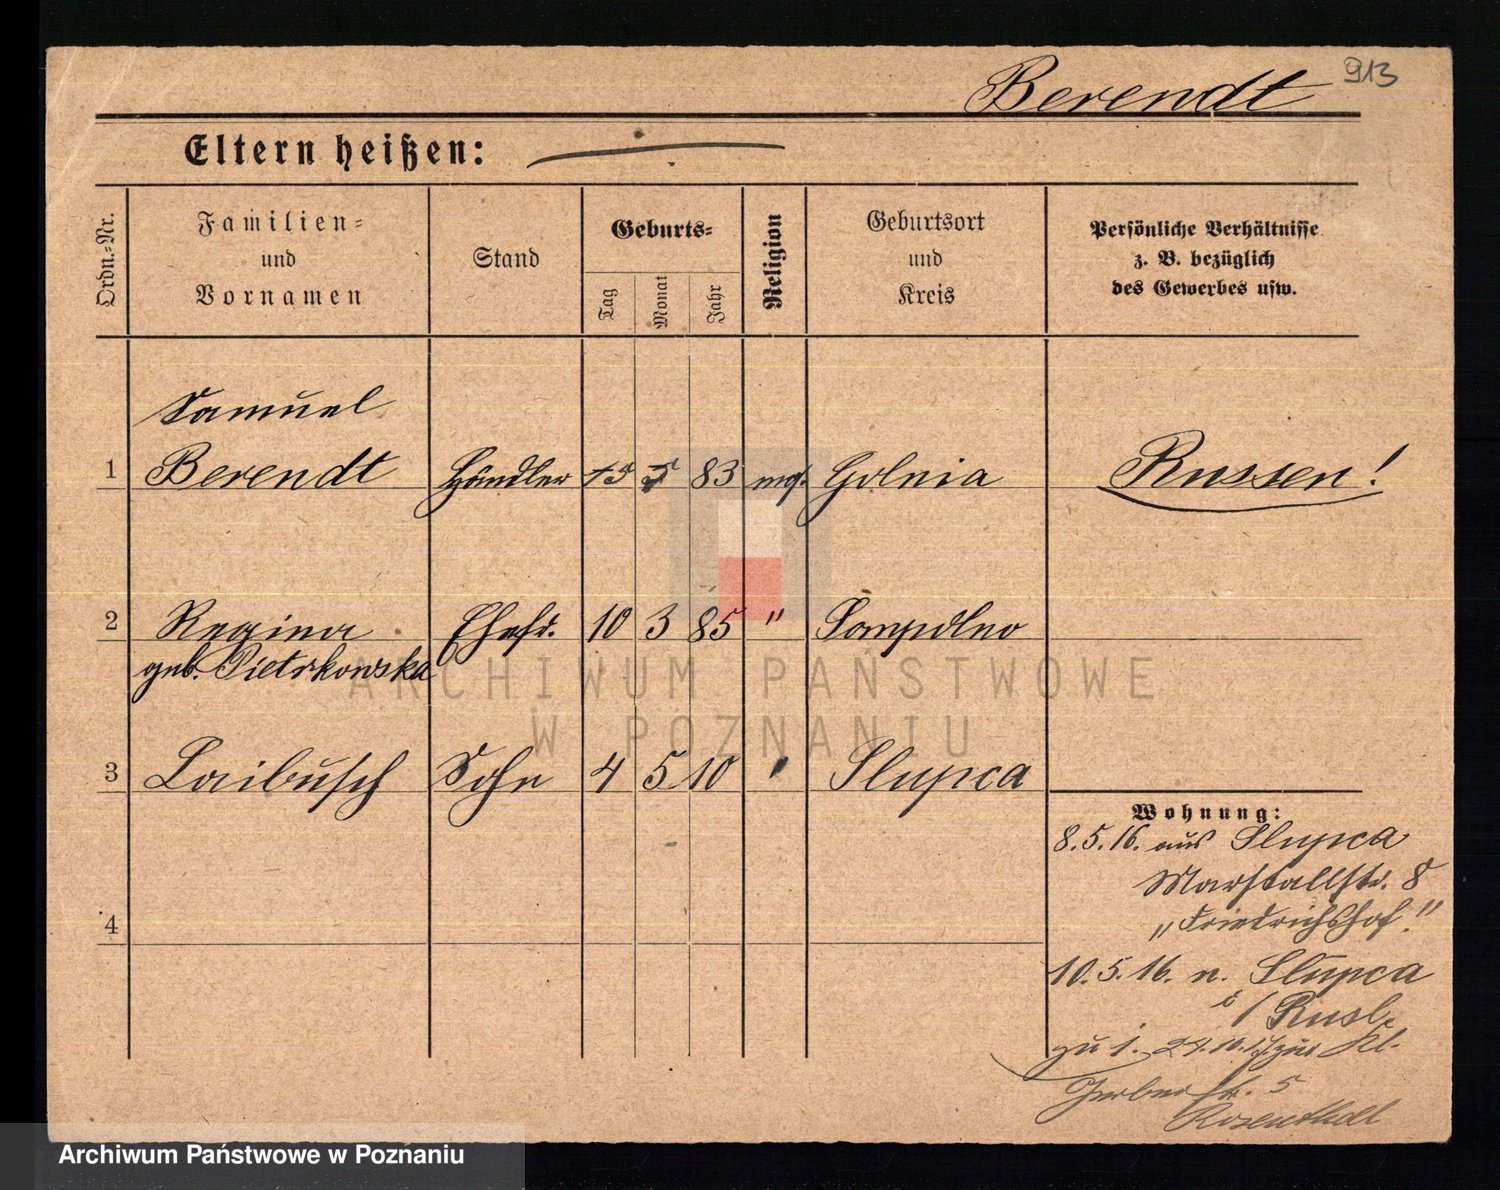 Berendt 913
Eltern heißen:
Ordn.-Nr.
Familien-
und
Vornamen
Stand
Geburts-
Tag
Monat
Jahr
Religion
Geburtsort
und
Kreis
Persönliche Verhältnisse
z. B. bezüglich
des Gewerbes usw.
Samuel
1 Berendt Händler 5 83 mos. Golnia Russen!
2 Regina Ehefr. 10 3 85 " Sompolno
geb. Pietrkowska
3 Laibusch Sohn 4 5 10 " Slupca
4
Wohnung:
8.5.16. aus Slupca
Marstallstr. 8
„Friedrichshof."
10.5.16. n. Slupca
i/Rusl.
zu 1. 24.10.17 zur Kl.
Gerberstr. 5
Rosenthal
ARCHIWUM PAŃSTWOWE
W POZNANIU
Archiwum Państwowe w Poznaniu